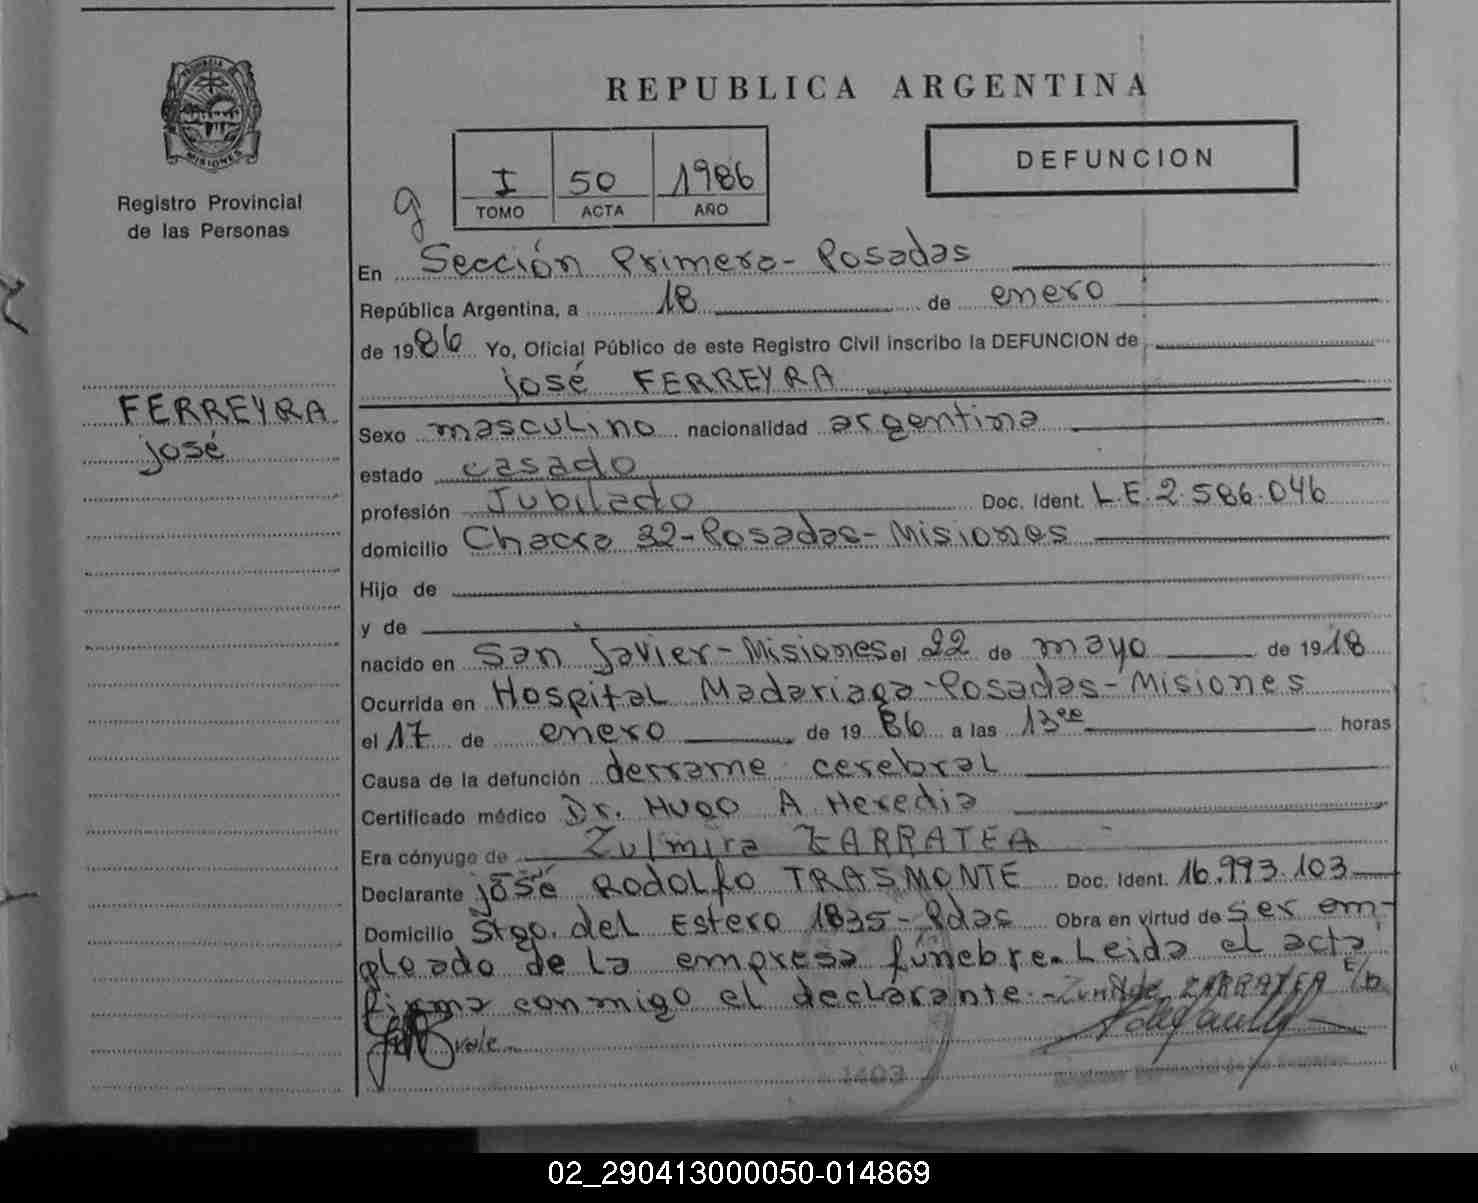 PROVINCIA DE
MISIONES
Registro Provincial
de las Personas
FERREYRA
José
REPUBLICA ARGENTINA
I 50 1986
TOMO ACTA AÑO
DEFUNCION
g
En Sección Primera - Posadas
República Argentina, a 18 de enero
de 1986 Yo, Oficial Público de este Registro Civil inscribo la DEFUNCION de
José FERREYRA
Sexo masculino nacionalidad argentina
estado casado
profesión Jubilado Doc. Ident. L.E. 2.586.046
domicilio Chacra 32-Posadas-Misiones
Hijo de
y de
nacido en San Javier-Misiones el 22 de mayo de 1918
Ocurrida en Hospital Madariaga-Posadas-Misiones
el 17 de enero de 1986 a las 13 horas
Causa de la defunción derrame cerebral
Certificado médico Dr. Hugo A Heredia
Era cónyuge de Zulmira ZARRATEA
Declarante José Rodolfo TRASMONTE Doc. Ident. 16.993.103
Domicilio Stgo. del Estero 1835-Pdas Obra en virtud de ser em-
pleado de la empresa fúnebre. Leida el acta
firma conmigo el declarante.- ZARRATEA E/L
vale
1403
02_290413000050-014869